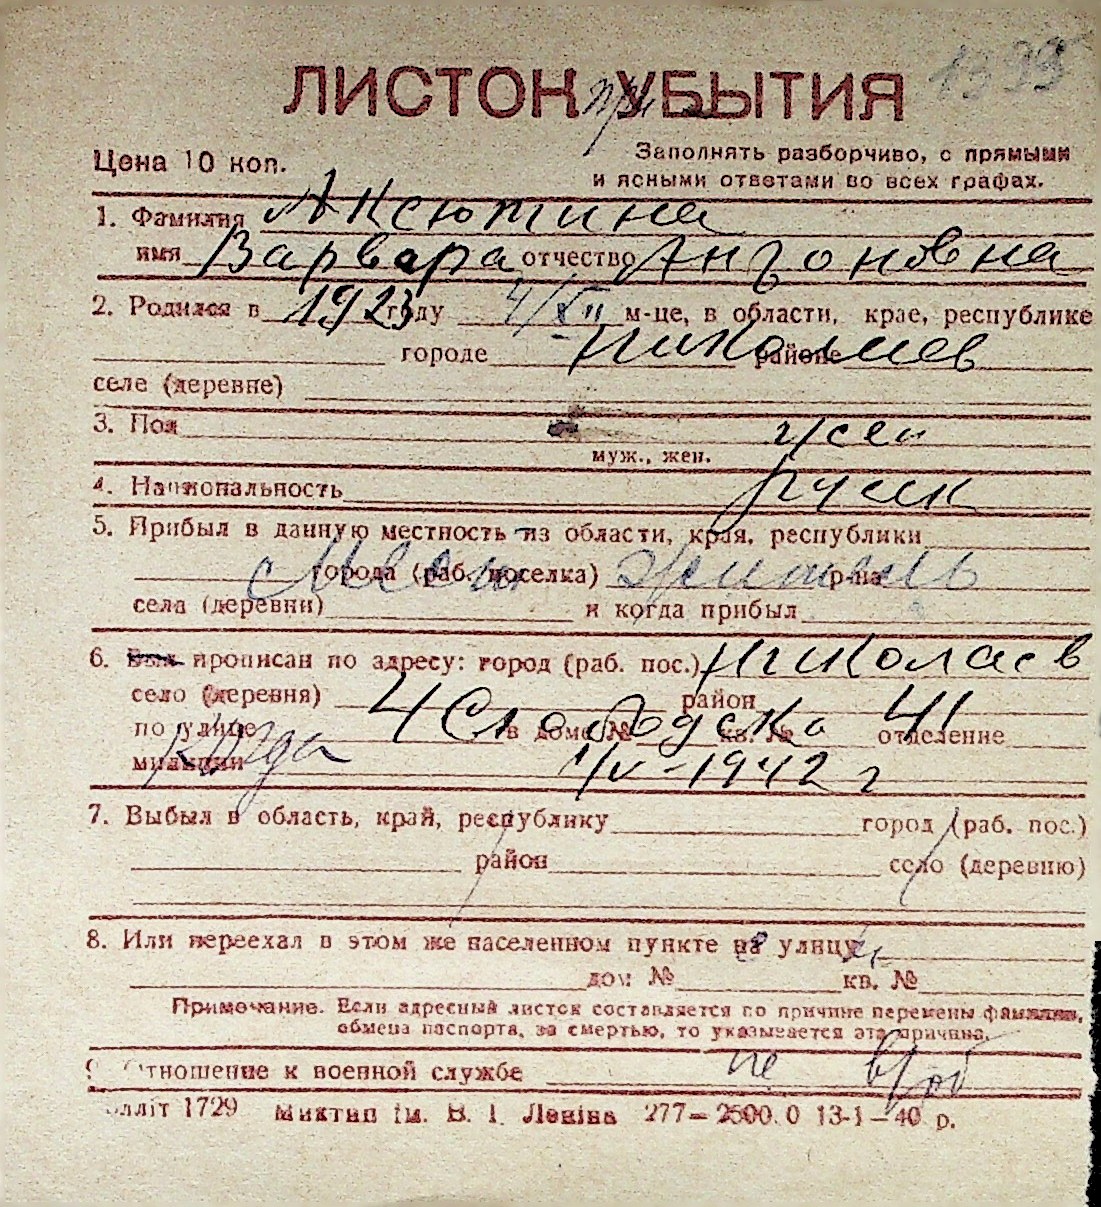 1399
ЛИСТОК при УБЫТИЯ
Цена 10 коп.
Заполнять разборчиво, с прямыми
и ясными ответами во всех графах.
1. Фамилия Аксютина
имя Варвара отчество Антоновна
2. Родился в 1923 году 4/XII м-це, в области, крае, республике
городе Николаев районе
селе (деревне)
3. Пол жен
муж., жен.
4. Национальность русск
5. Прибыл в данную местность из области, края, республики
города (раб. поселка) р-на
Мест житель
села (деревни) и когда прибыл
6. Был прописан по адресу: город (раб. пос.) Николаев
село (деревня) район
4 Слободска 41
по улице в доме № кв. № отделение
милиции когда 1/IV-1942 г
7. Выбыл в область, край, республику город (раб. пос.)
район село (деревню)
8. Или переехал в этом же населенном пункте на улицу
дом № кв. №
Примечание. Если адресный листок составляется по причине перемены фамилии,
обмена паспорта, за смертью, то указывается эта причина.
Отношение к военной службе не в/об
лліт 1729 Миктип ім. В. І. Леніна 277—2500.0 13-1—40 р.